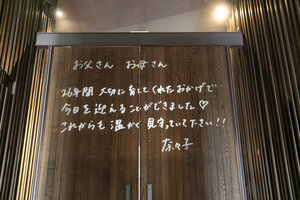 お父さん お母さん
26年間 大切に育ててくれたおかげで
今日を迎えることができました♡
これからも温かく見守っていて下さい!!
奈々子